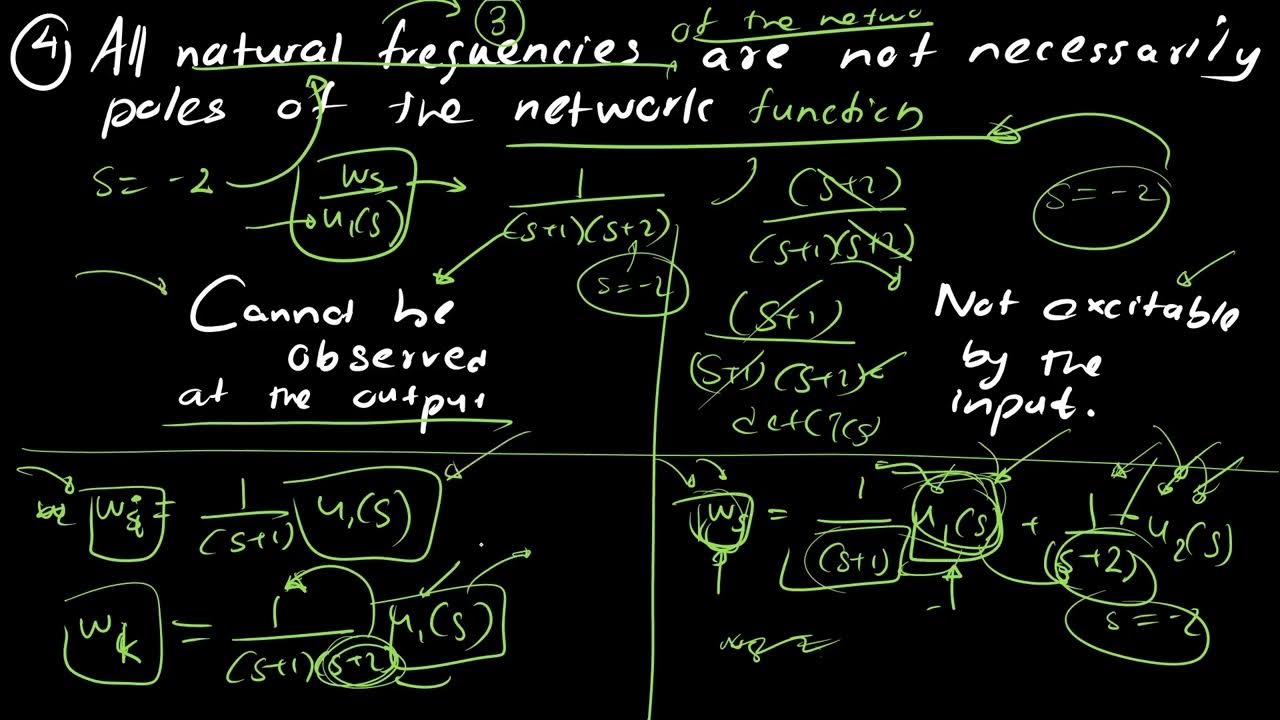 ③
of the netwo
④ All natural frequencies are not necessarily
poles of the network function
s = -2
ws
u₁(s)
1
(s+1)(s+2)
s = -2
(s+2)
(s+1)(s+2)
s = -2
(s+1)
(s+1)(s+2)
Cannot be
observed
at the output
Not excitable
by the
input.
= 1/(s+1) u₁(s)
wk = 1/((s+1)(s+2)) u₁(s)
= 1/(s+1) u₁(s) + 1/(s+2) u₂(s)
s = -2